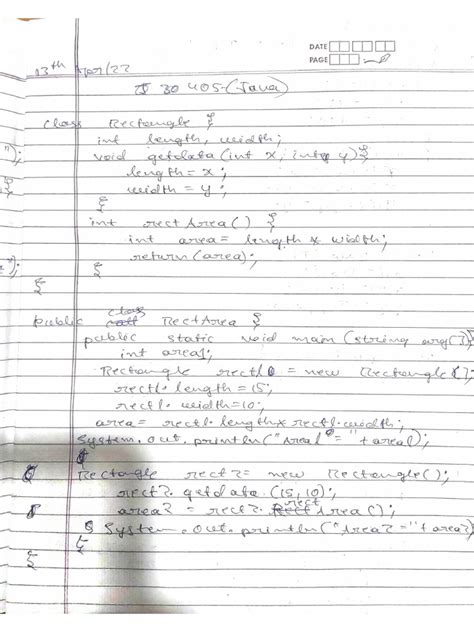 DATE
PAGE
13th Mar/22
30 405-(Java)
class Rectangle {
int length, width;
void getdata (int x, int y) {
length = x;
width = y;
}
int rectArea() {
int area = length * width;
return (area);
}
}
class
public RectArea {
public static void main (string arg[]) {
int area1;
Rectangle rect1 = new Rectangle();
rect1. length = 15;
rect1. width = 10;
area = rect1. length * rect1. width;
System. out. println ("Area1 = " + area1);
Rectangle rect2 = new Rectangle();
rect2. getdata (15, 10);
rect
area2 = rect2. Area();
System. out. println ("Area2 = " + area2)
}
}